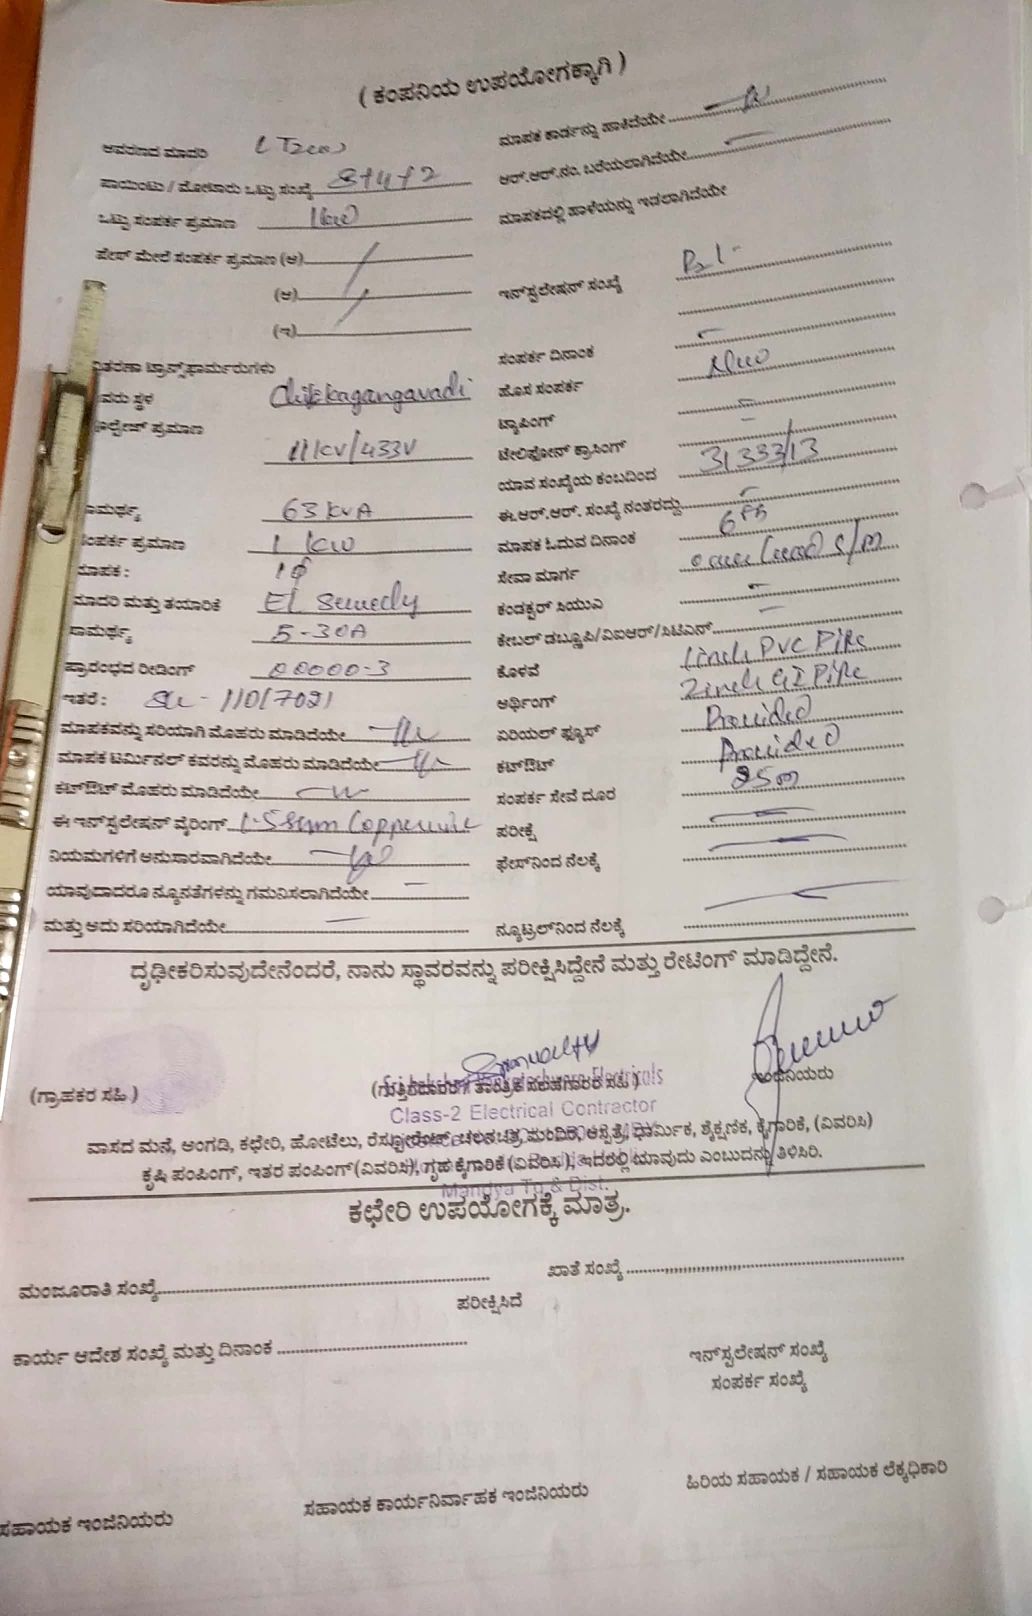 ( ಕಂಪನಿಯ ಉಪಯೋಗಕ್ಕಾಗಿ )
ಆವರಣದ ಮಾದರಿ
ಮಾಪಕ ಕಾರ್ಡನ್ನು ಹಾಕಿದೆಯೇ
ಪಾಯಿಂಟು / ಮೋಟಾರು ಒಟ್ಟು ಸಂಖ್ಯೆ 8+4+2
ಆರ್.ಆರ್.ನಂ. ಬರೆಯಲಾಗಿದೆಯೇ
ಒಟ್ಟು ಸಂಪರ್ಕ ಪ್ರಮಾಣ 1kW
ಮಾಪಕದಲ್ಲಿ ಹಾಳೆಯನ್ನು ಇಡಲಾಗಿದೆಯೇ
ಪೇಸ್ ಮೇಲೆ ಸಂಪರ್ಕ ಪ್ರಮಾಣ (ಅ)
(ಆ)
ಇನ್‌ಸ್ಟಲೇಷನ್ ಸಂಖ್ಯೆ
(ಇ)
ವಿತರಣಾ ಟ್ರಾನ್ಸ್‌ಫಾರ್ಮರುಗಳು
ಸಂಪರ್ಕ ದಿನಾಂಕ
ಸ್ಥಳ Chikkagangavadi
ಹೊಸ ಸಂಪರ್ಕ New
ವೋಲ್ಟೇಜ್ ಪ್ರಮಾಣ 11KV/433V
ಟ್ಯಾಪಿಂಗ್
ಟೆಲಿಫೋನ್ ಕ್ರಾಸಿಂಗ್
ಯಾವ ಸಂಖ್ಯೆಯ ಕಂಬದಿಂದ 31333/13
ಸಾಮರ್ಥ್ಯ 63 KVA
ಈ.ಆರ್.ಆರ್. ಸಂಖ್ಯೆ ನಂತರದ್ದು
ಸಂಪರ್ಕ ಪ್ರಮಾಣ 1 KW
ಮಾಪಕ ಓದುವ ದಿನಾಂಕ 6th
ಮಾಪಕ : 1ϕ
ಸೇವಾ ಮಾರ್ಗ s/m
ಮಾದರಿ ಮತ್ತು ತಯಾರಿಕೆ
ಕಂಡಕ್ಟರ್ ಸಿಯುಎ
ಸಾಮರ್ಥ್ಯ 5-30A
ಕೇಬಲ್ ಡಬ್ಲ್ಯೂಪಿ/ವಿಐಆರ್/ಸಿಟಿಎನ್
ಪ್ರಾರಂಭದ ರೀಡಿಂಗ್ 00000-3
ಕೊಳವೆ 1inch PVC Pipe
ಇತರೆ : 11017021
ಅರ್ಥಿಂಗ್ 2inch GI Pipe
ಮಾಪಕವನ್ನು ಸರಿಯಾಗಿ ಮೊಹರು ಮಾಡಿದೆಯೇ
ಏರಿಯಲ್ ಫ್ಯೂಸ್ Provided
ಮಾಪಕ ಟರ್ಮಿನಲ್ ಕವರನ್ನು ಮೊಹರು ಮಾಡಿದೆಯೇ
ಕಟ್‌ಔಟ್ Provided
ಕಟ್‌ಔಟ್ ಮೊಹರು ಮಾಡಿದೆಯೇ
ಸಂಪರ್ಕ ಸೇವೆ ದೂರ 25m
ಈ ಇನ್‌ಸ್ಟಲೇಷನ್ ವೈರಿಂಗ್ 1.5sqm Copper wire
ಪರೀಕ್ಷೆ
ನಿಯಮಗಳಿಗೆ ಅನುಸಾರವಾಗಿದೆಯೇ
ಫೇಸ್‌ನಿಂದ ನೆಲಕ್ಕೆ
ಯಾವುದಾದರೂ ನ್ಯೂನತೆಗಳನ್ನು ಗಮನಿಸಲಾಗಿದೆಯೇ
ಮತ್ತು ಅದು ಸರಿಯಾಗಿದೆಯೇ
ನ್ಯೂಟ್ರಲ್‌ನಿಂದ ನೆಲಕ್ಕೆ
ದೃಢೀಕರಿಸುವುದೇನೆಂದರೆ, ನಾನು ಸ್ಥಾವರವನ್ನು ಪರೀಕ್ಷಿಸಿದ್ದೇನೆ ಮತ್ತು ರೇಟಿಂಗ್ ಮಾಡಿದ್ದೇನೆ.
(ಗ್ರಾಹಕರ ಸಹಿ )
(ಗುತ್ತಿಗೆದಾರರ ತಾಂತ್ರಿಕ ಸಲಹೆಗಾರರ ಸಹಿ )
ಇಂಜಿನಿಯರು
Electricals
Class-2 Electrical Contractor
ವಾಸದ ಮನೆ, ಅಂಗಡಿ, ಕಛೇರಿ, ಹೋಟೆಲು, ರೆಸ್ಟೋರೆಂಟ್, ಚಲನಚಿತ್ರ ಮಂದಿರ, ಆಸ್ಪತ್ರೆ, ಧಾರ್ಮಿಕ, ಶೈಕ್ಷಣಿಕ, ಕೈಗಾರಿಕೆ, (ವಿವರಿಸಿ)
ಕೃಷಿ ಪಂಪಿಂಗ್, ಇತರ ಪಂಪಿಂಗ್ (ವಿವರಿಸಿ), ಗೃಹ ಕೈಗಾರಿಕೆ (ವಿವರಿಸಿ), ಇದರಲ್ಲಿ ಯಾವುದು ಎಂಬುದನ್ನು ತಿಳಿಸಿರಿ.
Mandya Tq & Dist.
ಕಛೇರಿ ಉಪಯೋಗಕ್ಕೆ ಮಾತ್ರ.
ಮಂಜೂರಾತಿ ಸಂಖ್ಯೆ
ಖಾತೆ ಸಂಖ್ಯೆ
ಪರೀಕ್ಷಿಸಿದೆ
ಕಾರ್ಯ ಆದೇಶ ಸಂಖ್ಯೆ ಮತ್ತು ದಿನಾಂಕ
ಇನ್‌ಸ್ಟಲೇಷನ್ ಸಂಖ್ಯೆ
ಸಂಪರ್ಕ ಸಂಖ್ಯೆ
ಸಹಾಯಕ ಇಂಜಿನಿಯರು
ಸಹಾಯಕ ಕಾರ್ಯನಿರ್ವಾಹಕ ಇಂಜಿನಿಯರು
ಹಿರಿಯ ಸಹಾಯಕ / ಸಹಾಯಕ ಲೆಕ್ಕಧಿಕಾರಿ